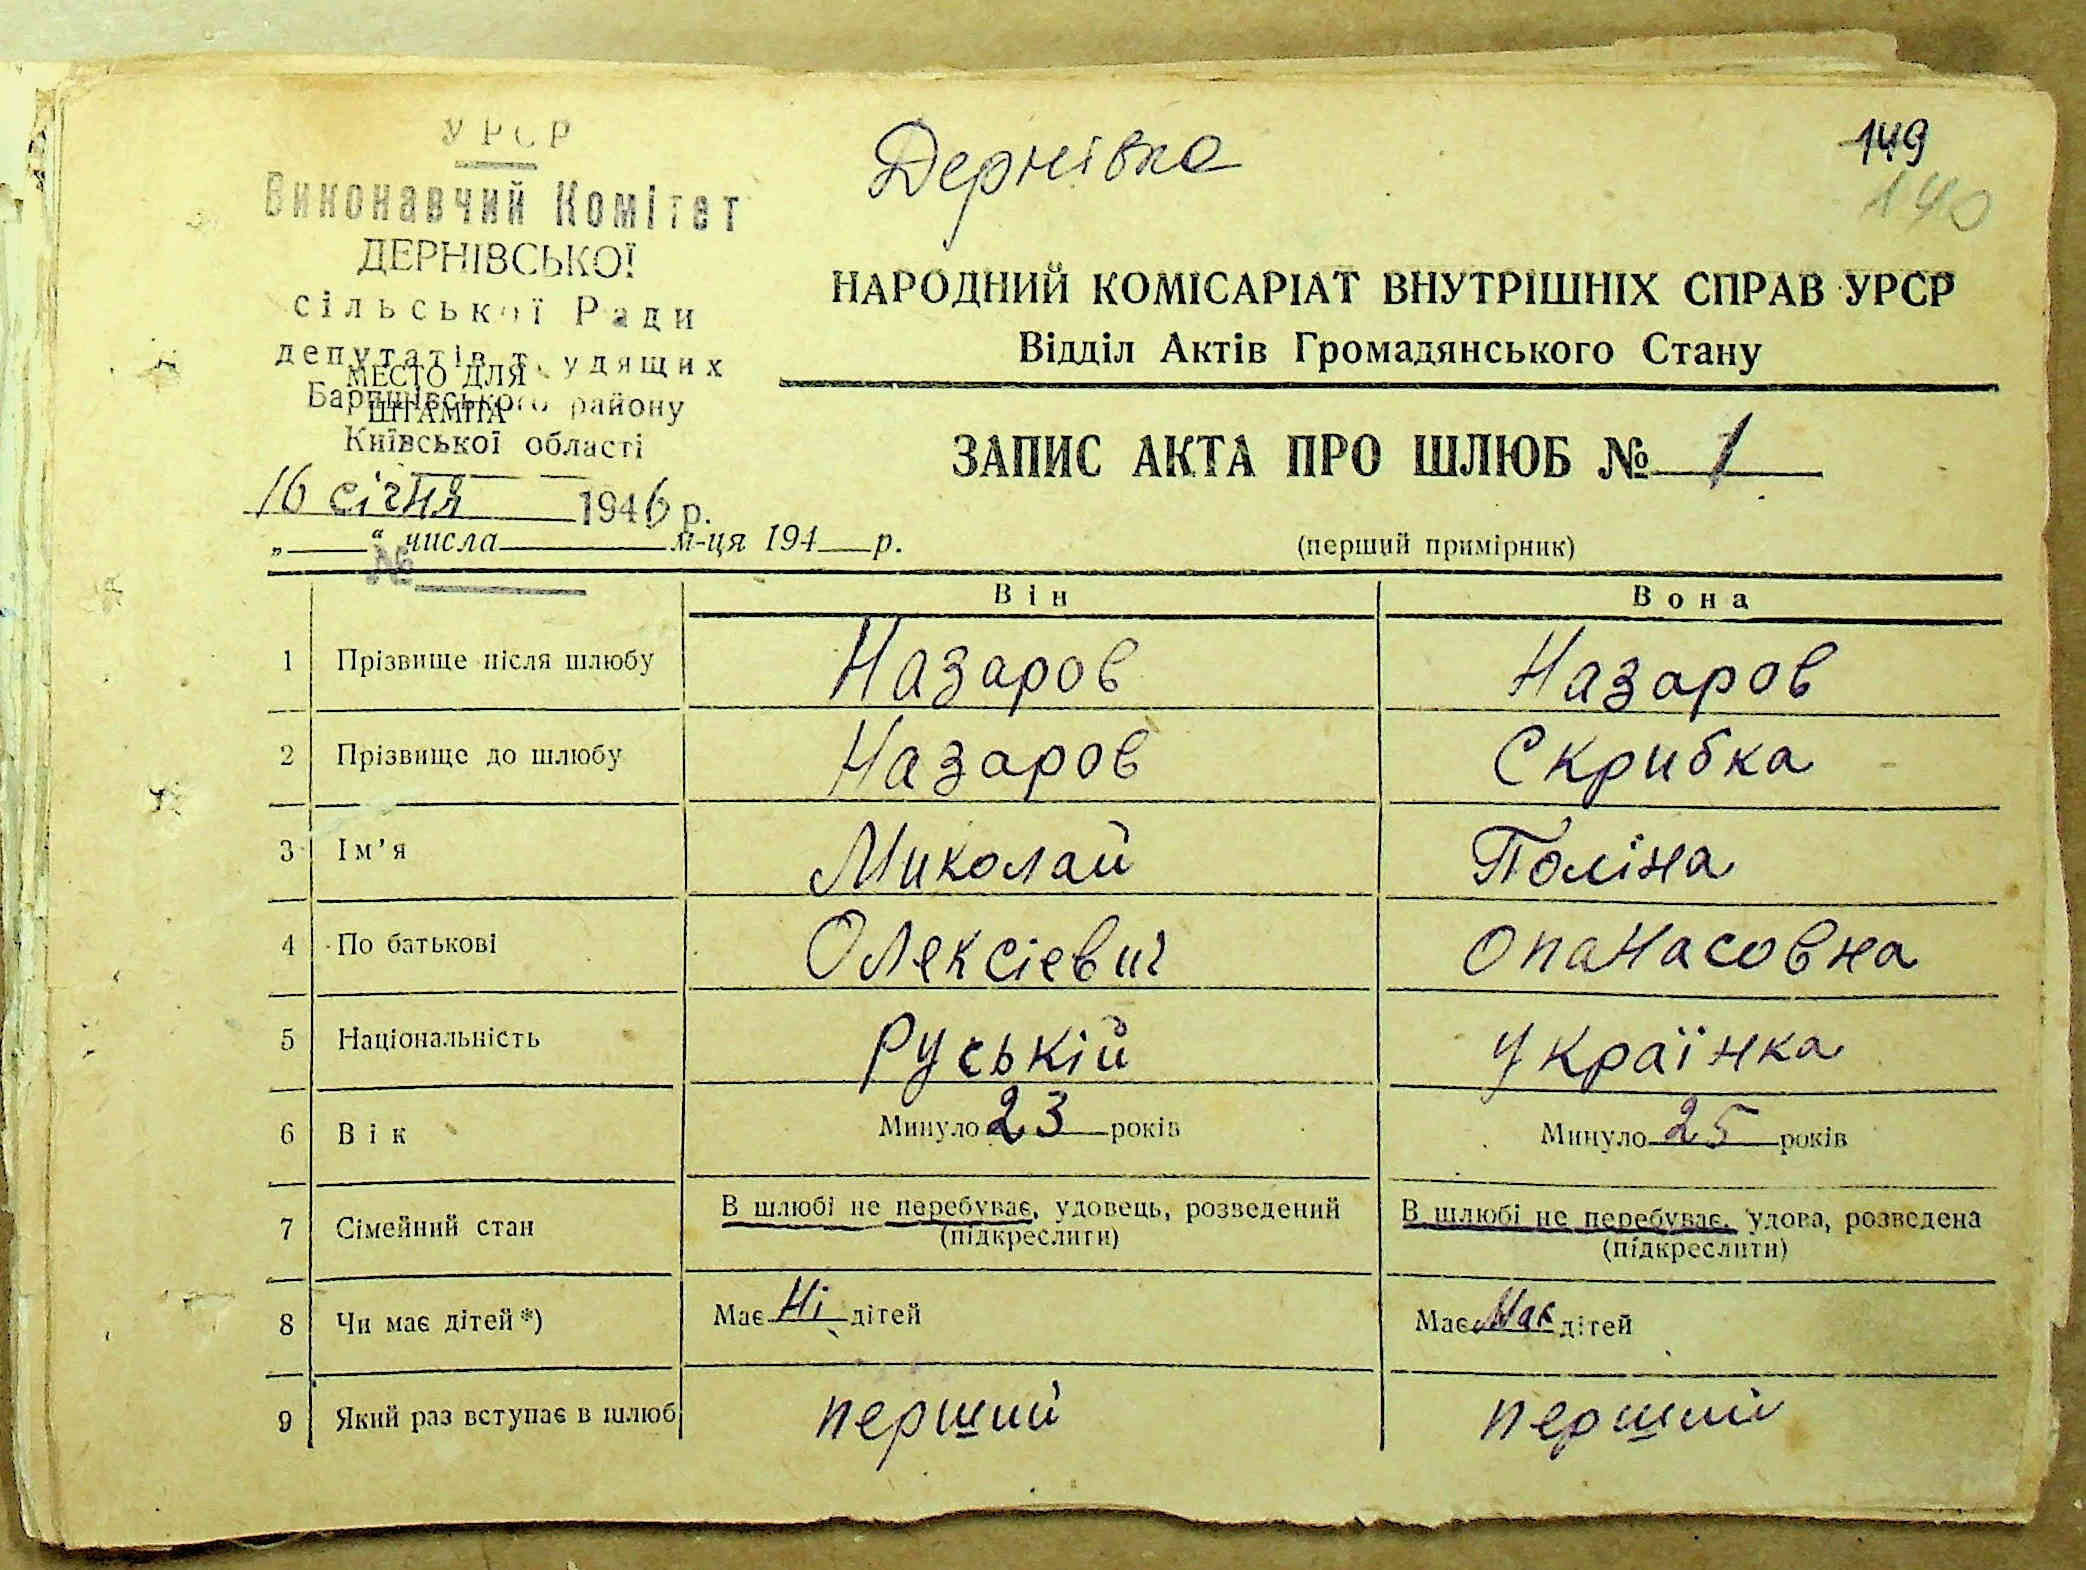 УРСР
Виконавчий Комітет
ДЕРНІВСЬКОЇ
сільської Ради
депутатів трудящих
МЕСТО ДЛЯ
Баришівського району
ШТАМПА
Київської області
16 січня 1946 р.
„ “ числа м-ця 194 р.
№
Дернівка
149
140
НАРОДНИЙ КОМІСАРІАТ ВНУТРІШНІХ СПРАВ УРСР
Відділ Актів Громадянського Стану
ЗАПИС АКТА ПРО ШЛЮБ № 1
(перший примірник)
Він Вона
1 Прізвище після шлюбу Назаров Назаров
2 Прізвище до шлюбу Назаров Скрибка
3 Ім’я Миколай Поліна
4 По батькові Олексієвич Опанасовна
5 Національність Руській Українка
6 Вік Минуло 23 років Минуло 25 років
7 Сімейний стан В шлюбі не перебуває, удовець, розведений В шлюбі не перебуває, удова, розведена
(підкреслити) (підкреслити)
8 Чи має дітей *) Має Ні дітей Має дітей
9 Який раз вступає в шлюб перший перший